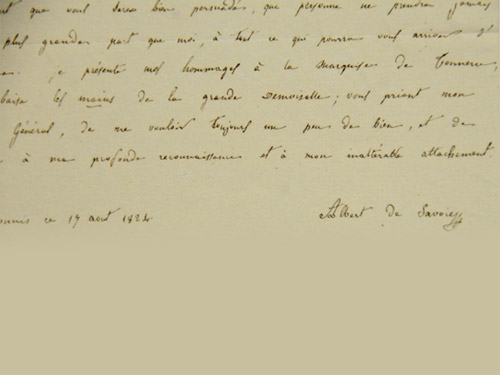 que vous serez bien persuadé, que personne ne prendra jamais
plus grande part que moi, à tout ce qui pourra vous arriver
je présente mes hommages à la Marquise de Tonnerre,
baise les mains de la grande Demoiselle; vous priant mon
Général, de me vouloir toujours un peu de bien, et de
à ma profonde reconnaissance et à mon inaltérable attachement.
ce 17 aout 1824 Albert de Savoie